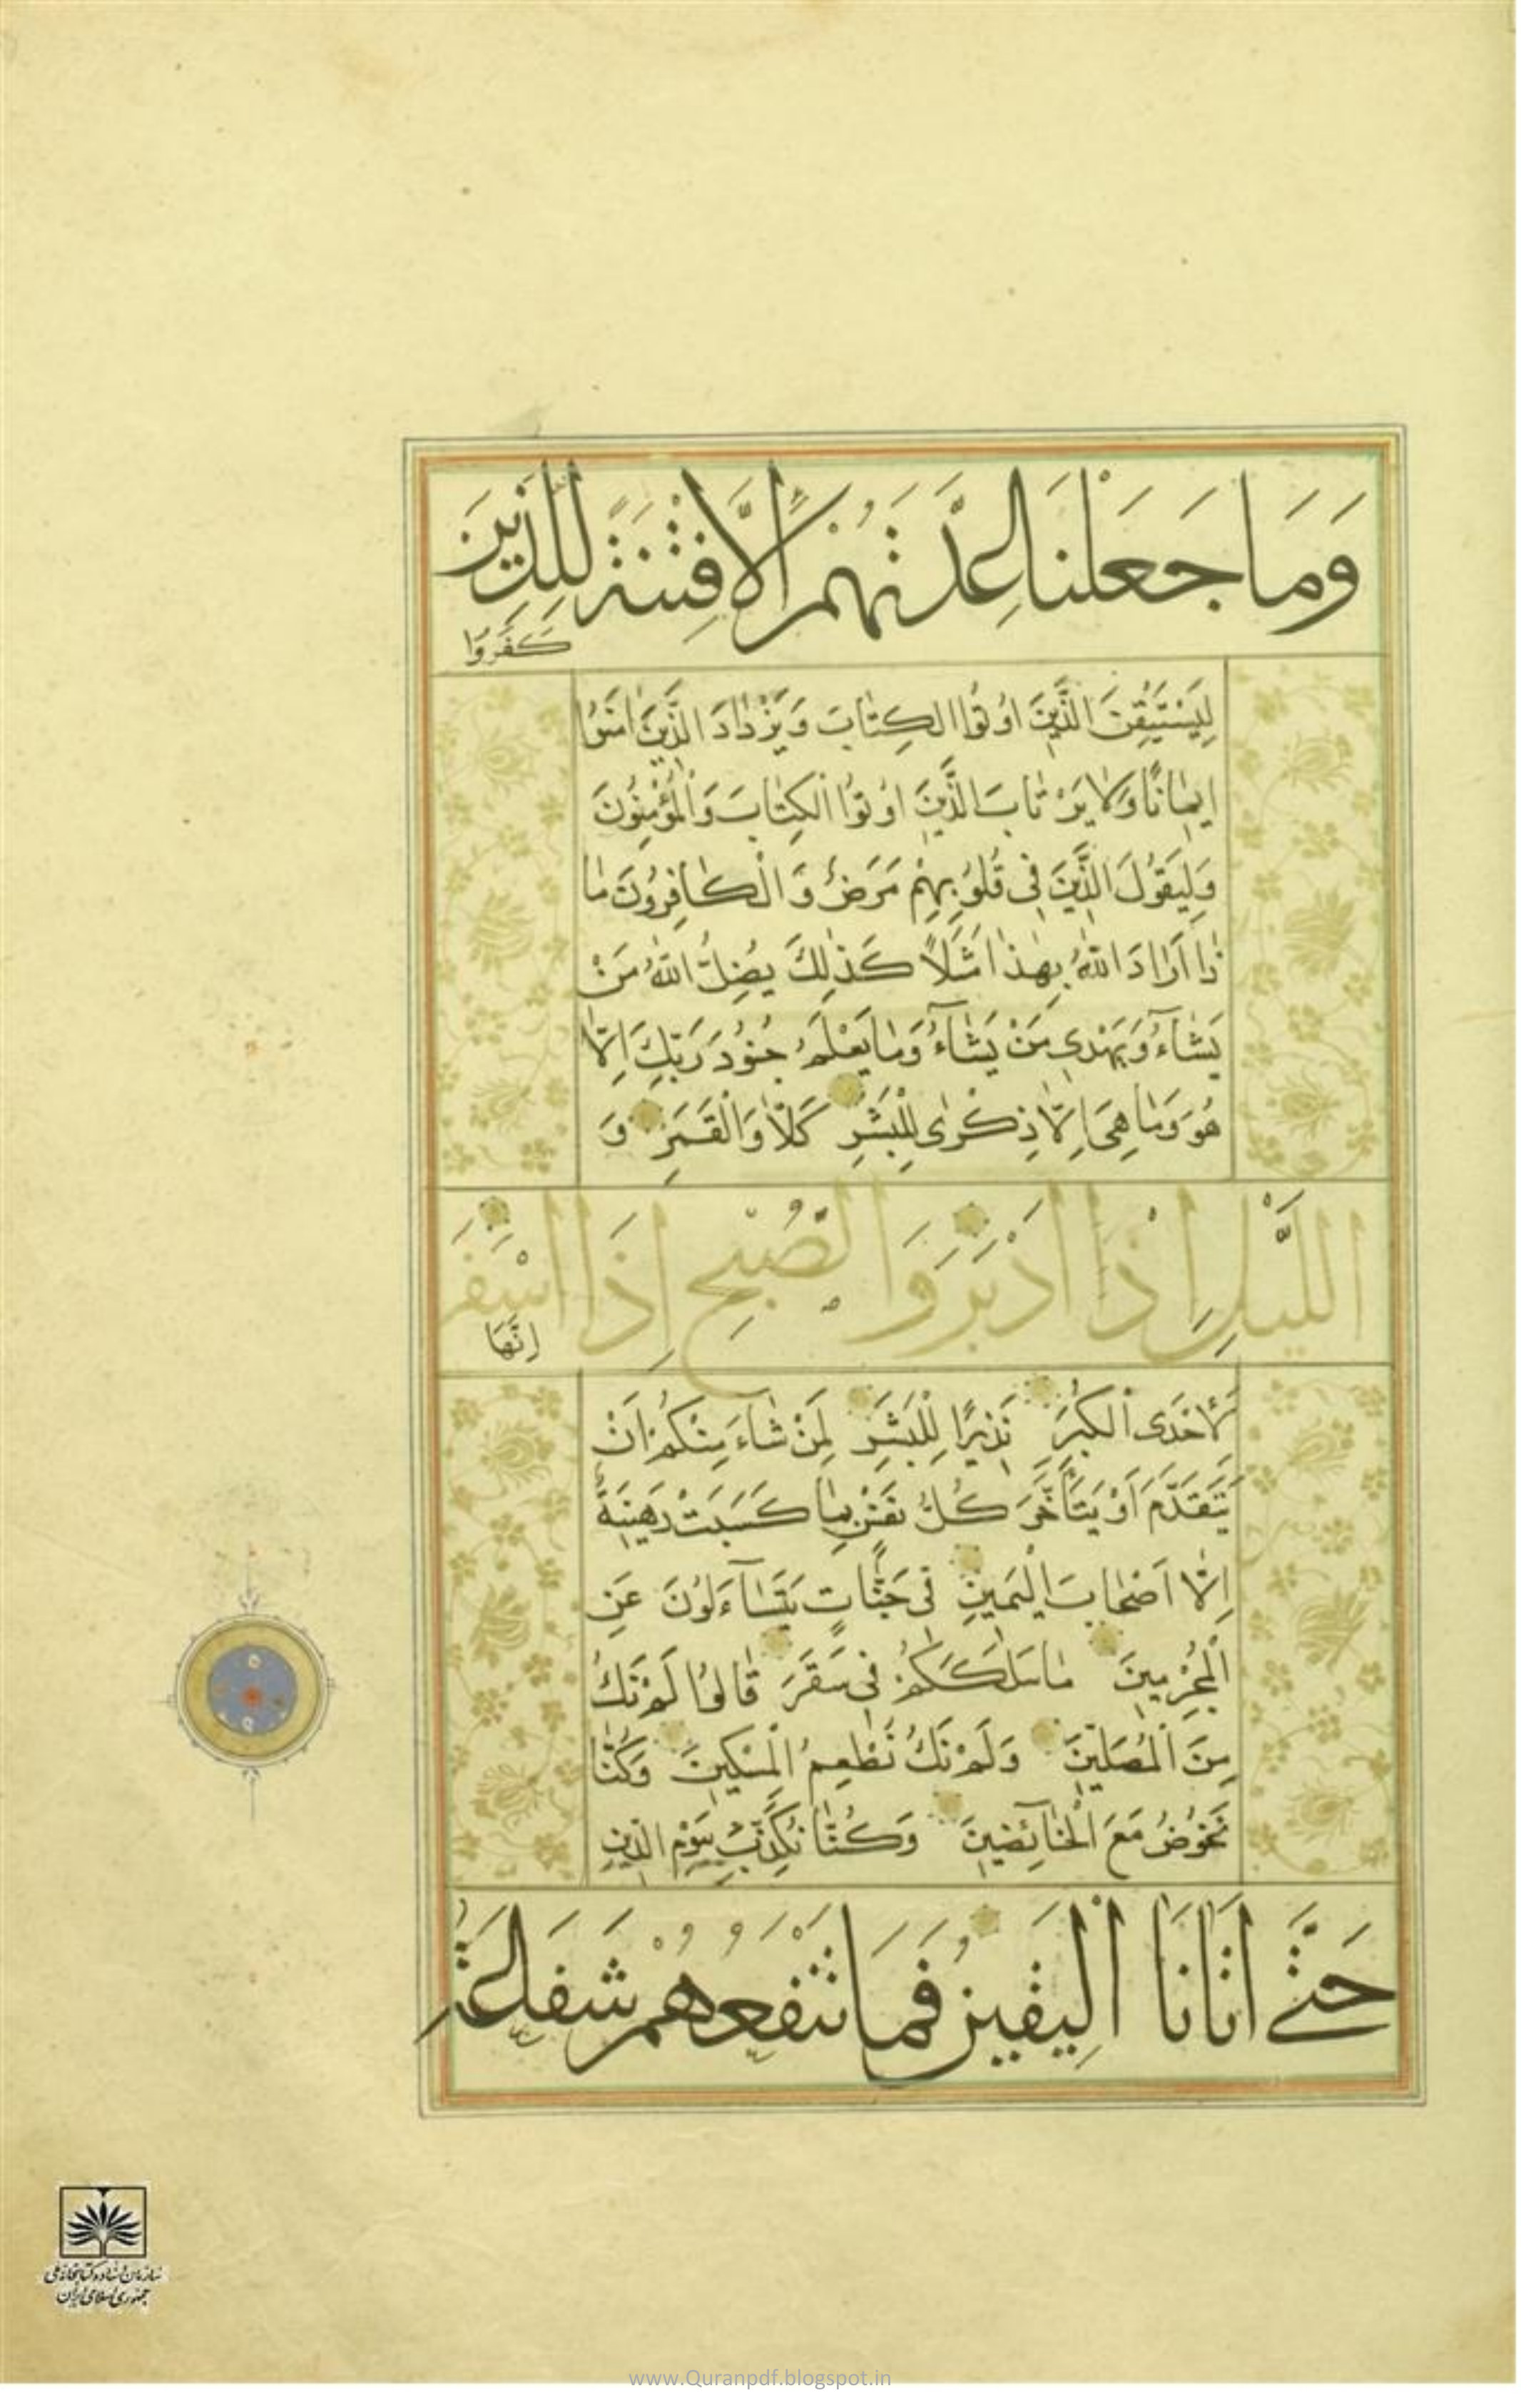 وَمَا جَعَلْنَا عِدَّتَهُمْ اِلَّا فِتْنَةً لِلَّذِينَ
كَفَرُوا
لِيَسْتَيْقِنَ الَّذِينَ اُوتُوا الْكِتَابَ وَيَزْدَادَ الَّذِينَ اٰمَنُوا
اِيمَانًا وَلَا يَرْتَابَ الَّذِينَ اُوتُوا الْكِتَابَ وَالْمُؤْمِنُونَ
وَلِيَقُولَ الَّذِينَ فِى قُلُوبِهِمْ مَرَضٌ وَالْكَافِرُونَ مَا
ذَا اَرَادَ اللّٰهُ بِهٰذَا مَثَلًا كَذٰلِكَ يُضِلُّ اللّٰهُ مَنْ
يَشَآءُ وَيَهْدِى مَنْ يَشَآءُ وَمَا يَعْلَمُ جُنُودَ رَبِّكَ اِلَّا
هُوَ وَمَا هِىَ اِلَّا ذِكْرٰى لِلْبَشَرِ كَلَّا وَالْقَمَرِ وَ
اللَّيْلِ اِذَا اَدْبَرَ وَالصُّبْحِ اِذَا اَسْفَرَ
اِنَّهَا
لَاِحْدَى الْكُبَرِ نَذِيرًا لِلْبَشَرِ لِمَنْ شَآءَ مِنْكُمْ اَنْ
يَتَقَدَّمَ اَوْ يَتَاَخَّرَ كُلُّ نَفْسٍ بِمَا كَسَبَتْ رَهِينَةٌ
اِلَّا اَصْحَابَ الْيَمِينِ فِى جَنَّاتٍ يَتَسَآءَلُونَ عَنِ
الْمُجْرِمِينَ مَا سَلَكَكُمْ فِى سَقَرَ قَالُوا لَمْ نَكُ
مِنَ الْمُصَلِّينَ وَلَمْ نَكُ نُطْعِمُ الْمِسْكِينَ وَكُنَّا
نَخُوضُ مَعَ الْخَآئِضِينَ وَكُنَّا نُكَذِّبُ بِيَوْمِ الدِّينِ
حَتَّى اَتَانَا الْيَقِينُ فَمَا تَنْفَعُهُمْ شَفَاعَةُ
سازمان اسناد و کتابخانه ملی
جمهوری اسلامی ایران
www.Quranpdf.blogspot.in